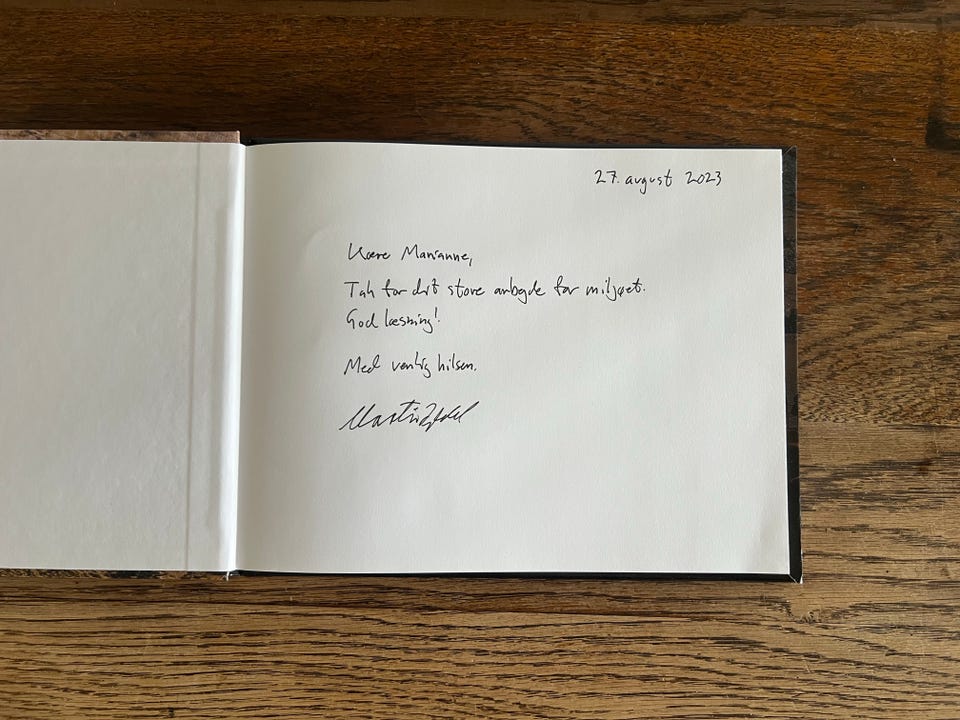 27. august 2023
Kære Marianne,
Tak for dit store arbejde for miljøet.
God læsning!
Med venlig hilsen,
Martin